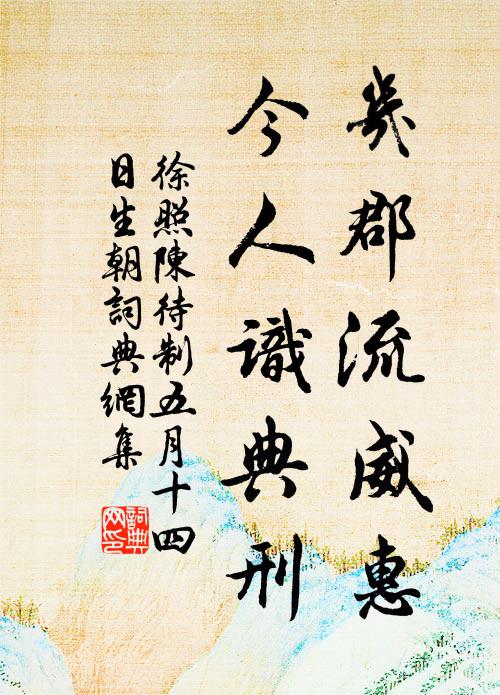 幾郡流威惠
今人識典刑
徐照陳待制五月十四
日生朝詞典網集
詞典網印